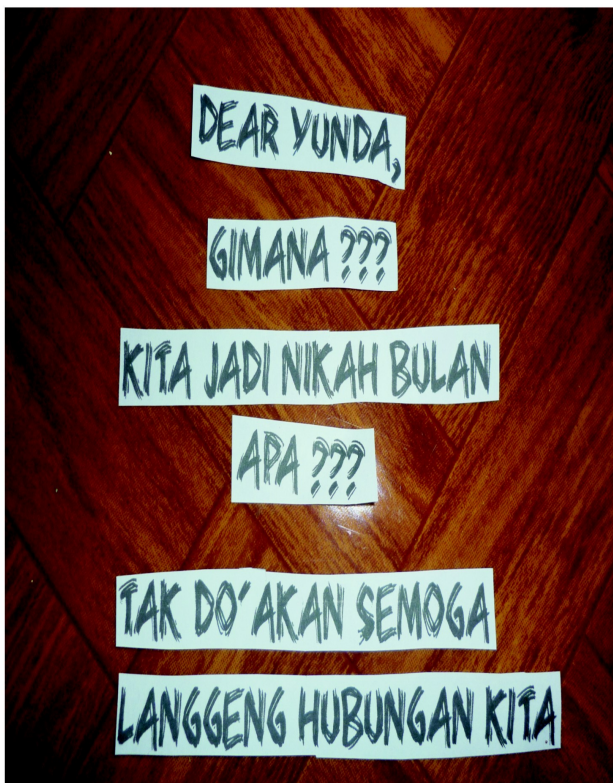 DEAR YUNDA,
GIMANA ???
KITA JADI NIKAH BULAN
APA ???
TAK DO'AKAN SEMOGA
LANGGENG HUBUNGAN KITA